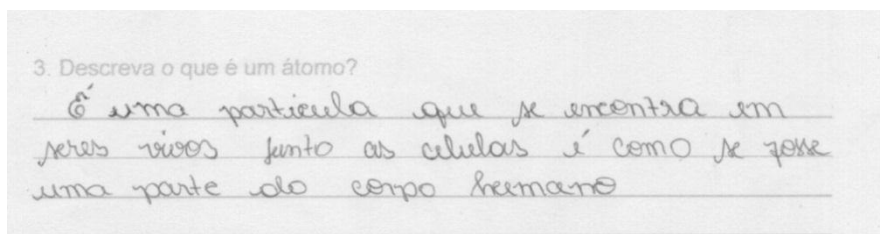 3. Descreva o que é um átomo?
É uma particula que se encontra em
seres vivos junto as celulas é como se fosse
uma parte do corpo humano